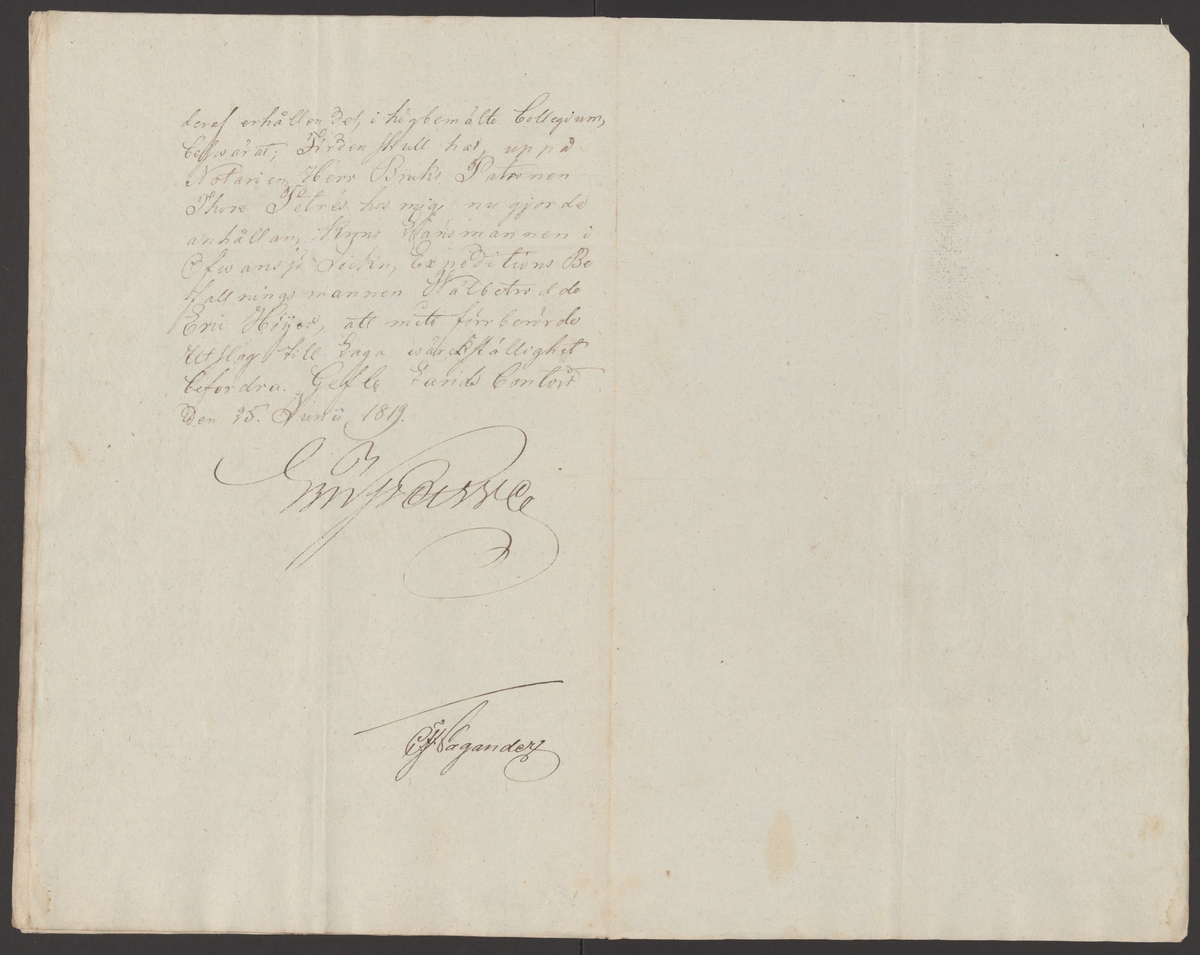 deraf erhållendet, i högbemälte Collegium,
beswärat; Fördenskull har, uppå
Notarien, Herr Bruks Patronen
Thore Petrés hos mig, nu gjorde
anhållan, Krono Länsmannen i
Ofwansjö Sockn, Expeditions Be
fallningsmannen Wälbetrodde
Eric Höijer, att mitt förrberörde
Utslag till Laga wärckställighet
befordra. Gefle Lands Contoir
den 25. Junii 1819.
CF Wagander